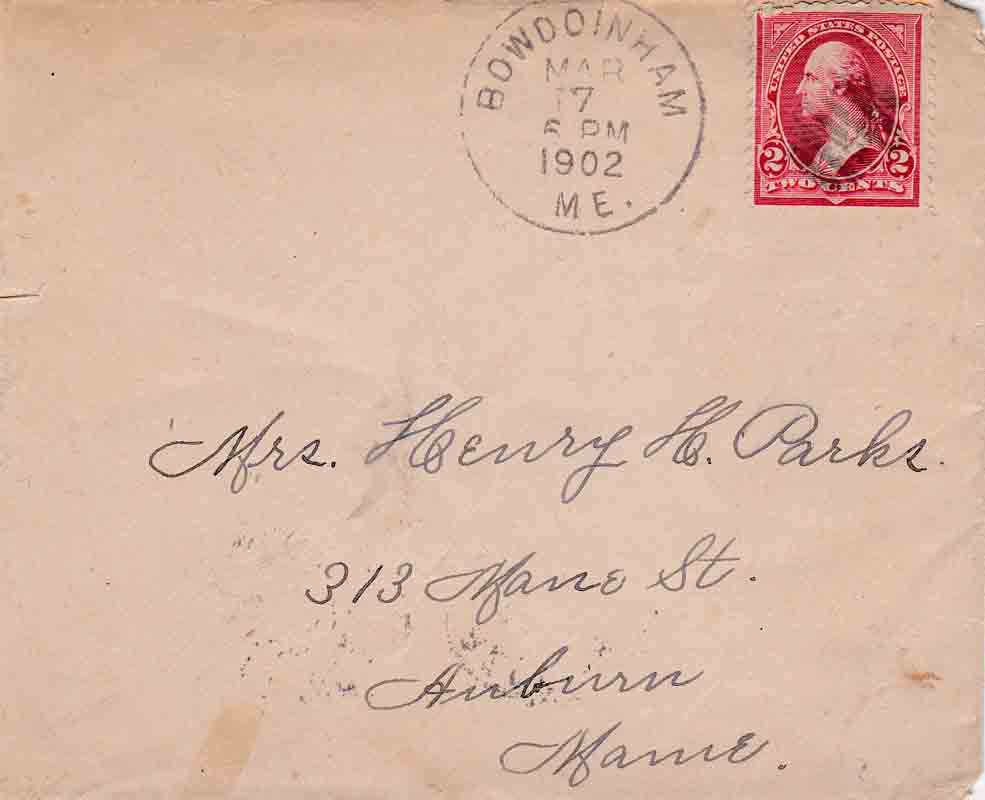 BOWDOINHAM
MAR
17
6 PM
1902
ME.
UNITED STATES POSTAGE
2 2
TWO CENTS
Mrs. Henry H. Parks.
313 Mane St.
Auburn
Maine.